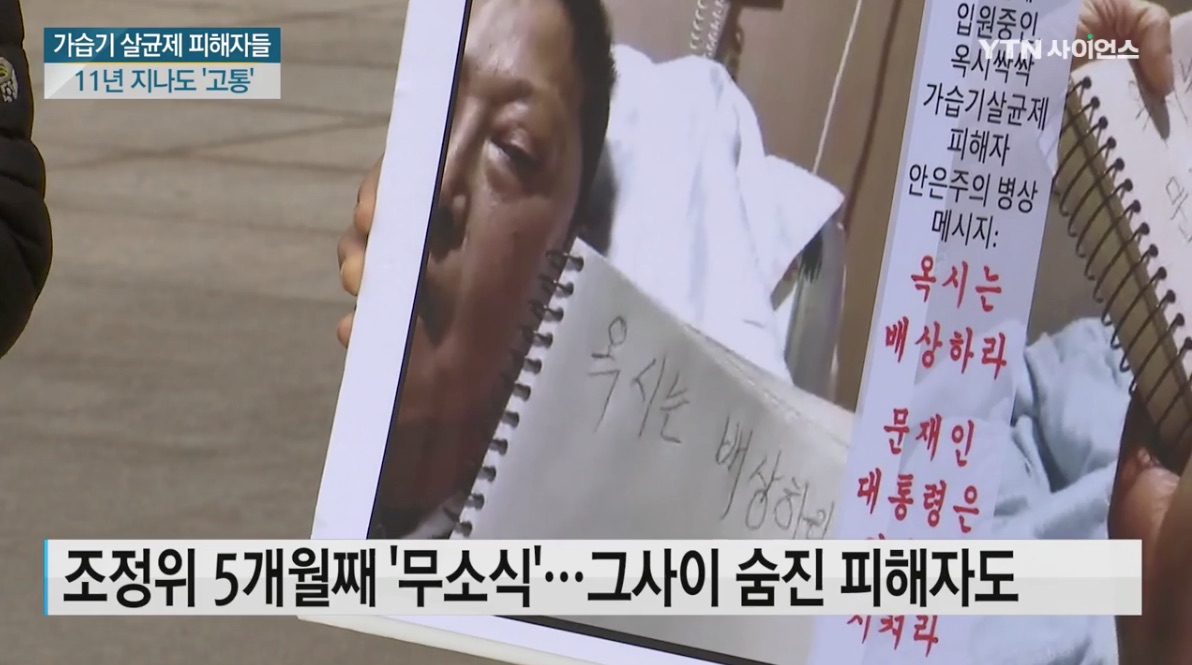 가습기 살균제 피해자들
11년 지나도 '고통'
YTN 사이언스
입원중인
옥시싹싹
가습기살균제
피해자
안은주의 병상
메시지:
옥시는
배상하라
문재인
대통령은
옥시는 배상하라
조정위 5개월째 '무소식'…그사이 숨진 피해자도